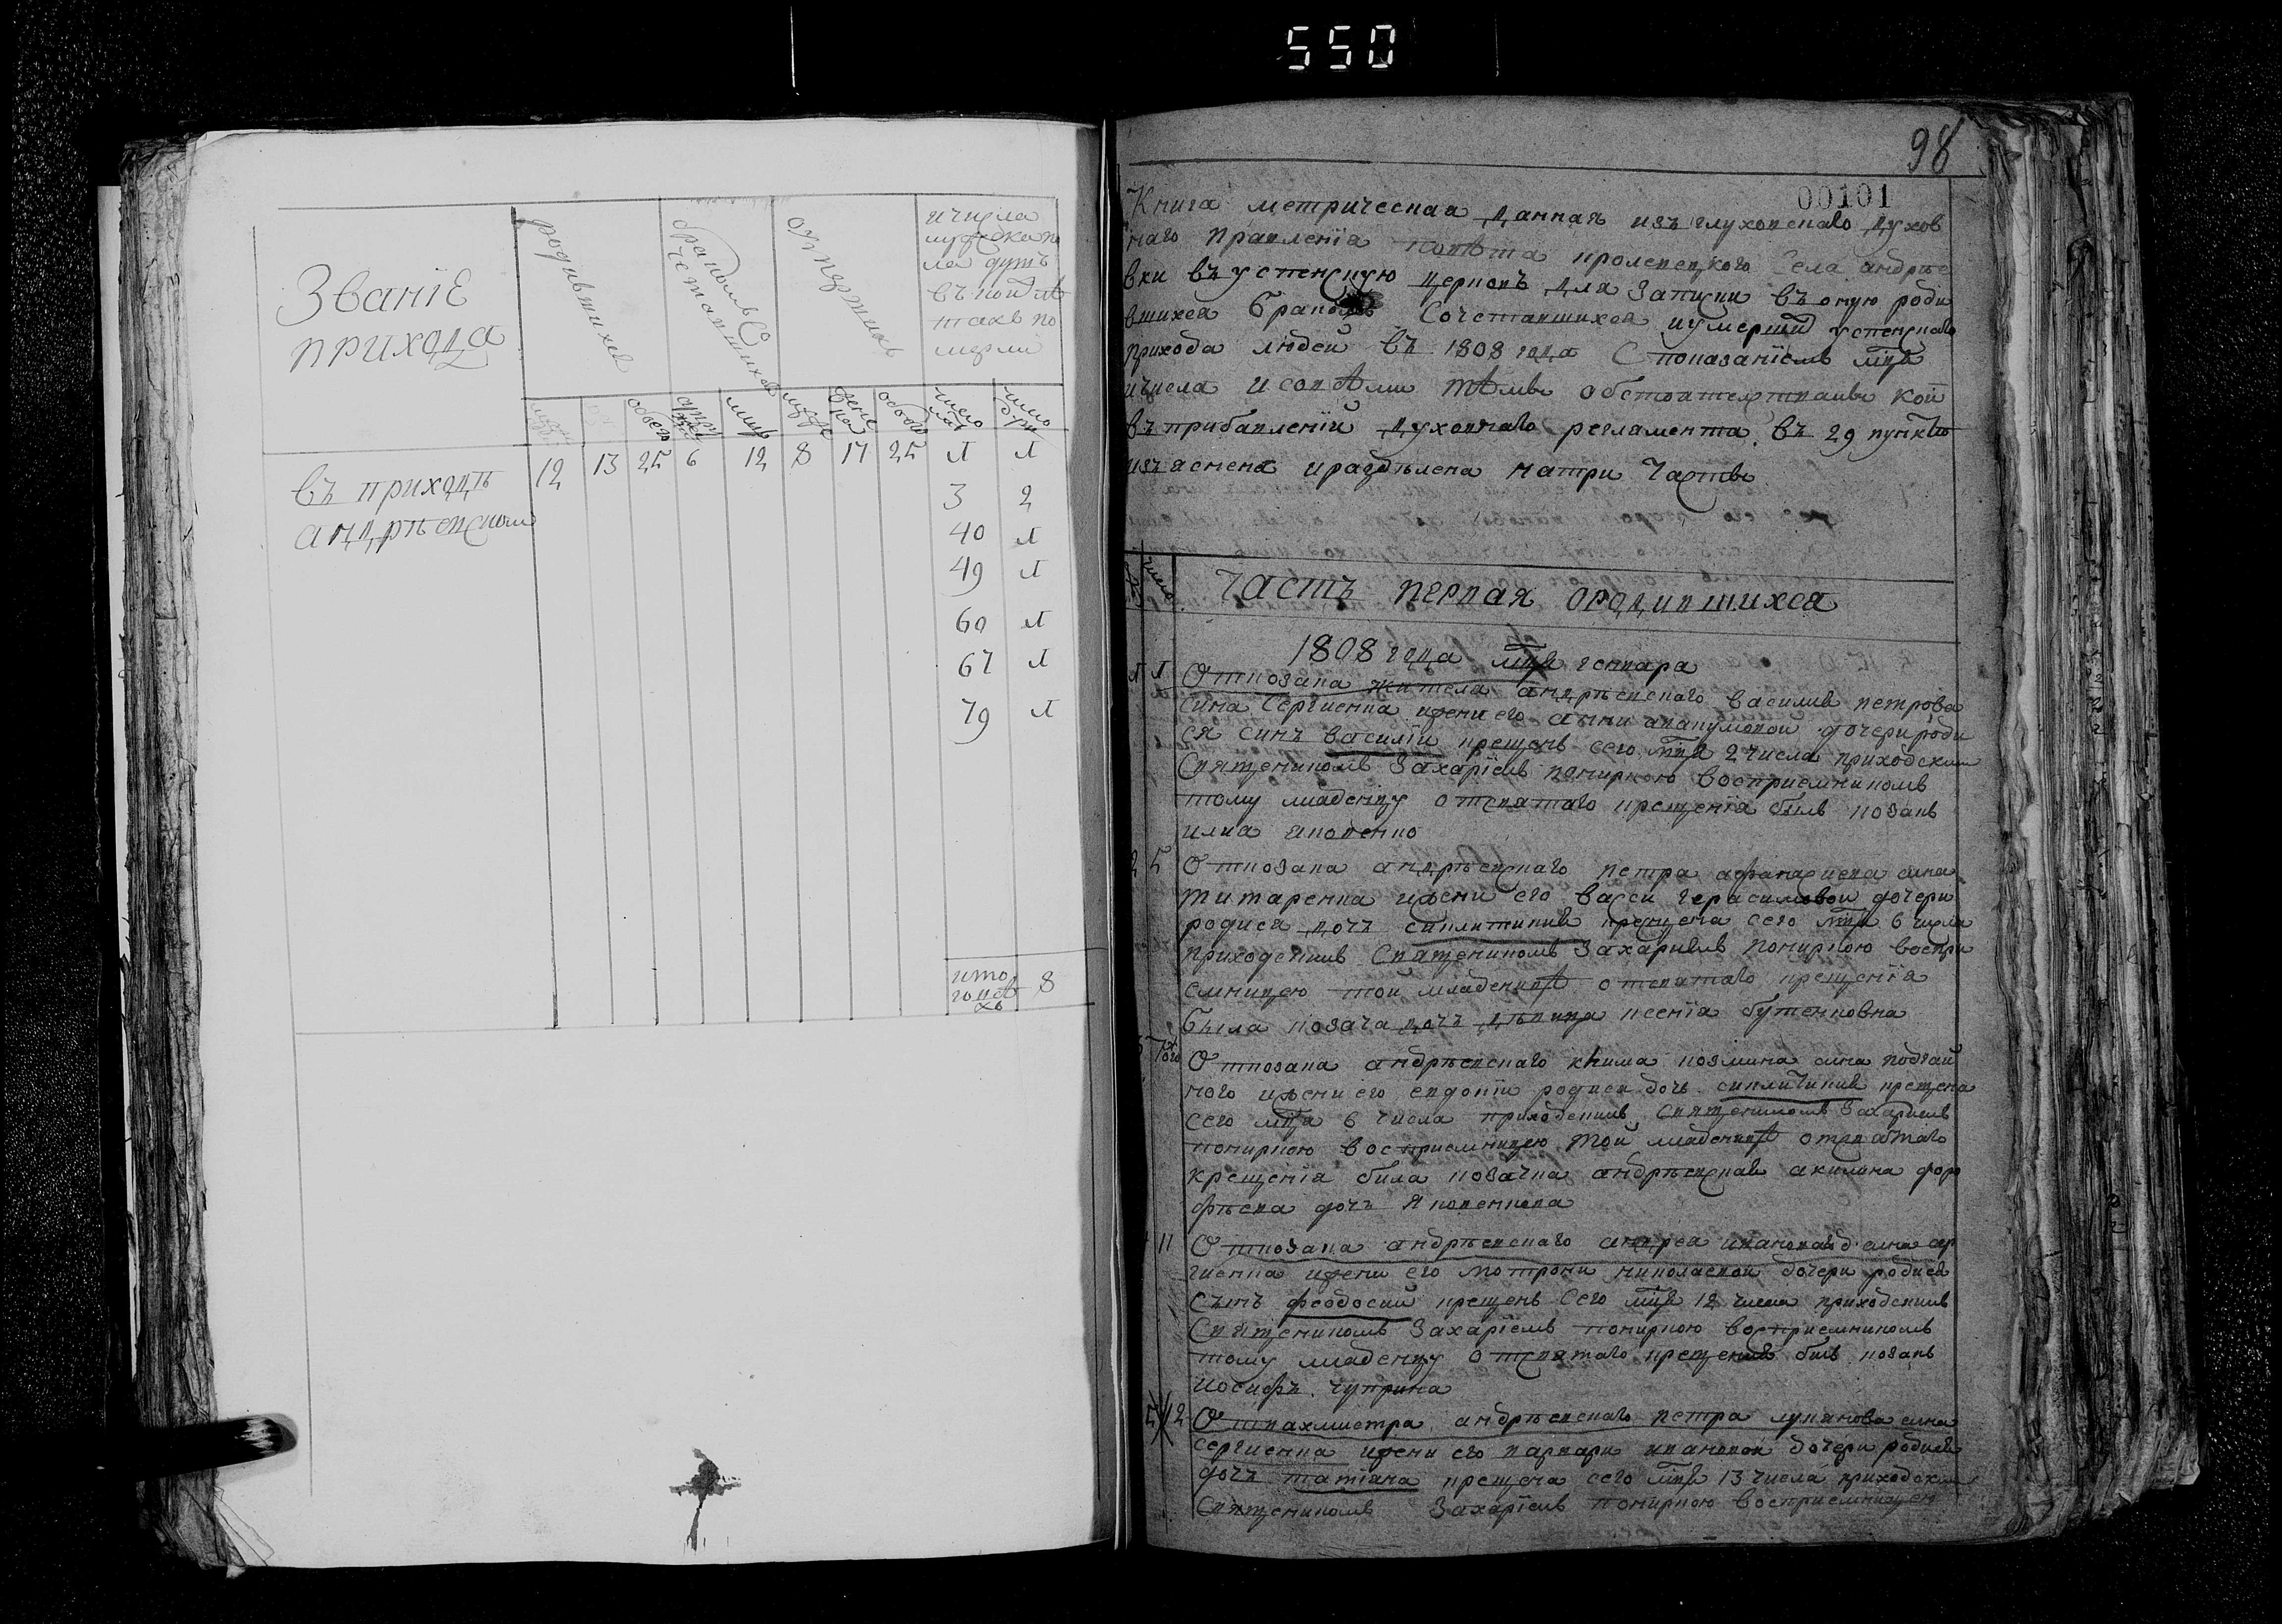 550
Званіе
прихода
родившихся
бракомъ со
четавшихся
умершихъ
ичисла
мужеска по
ла душъ
въ коих лѣ
тахъ по
мерли
обоего
супру
жест
лицъ
муже
женс
ка
обоего
число
лѣт
число
душ
въ приходѣ
андрѣевском
12 13 25 6 12 8 17 25 1 1
3 2
40 1
49 1
60 1
67 1
79 1
ито
го всѣ
хъ
8
98
00101
Книга метрическая данная изъ глуховскаго духов
наго правленія повѣта кролевецкого села андрѣе
вки въ успенскую церковъ для записки въ оную роди
вшихся бракомъ сочетавшихся иумерших успенскаго
прихода людей въ 1808 года споказаніемъ мца
ичисла исовсѣми тѣми обстоятелствами кои
въ прибавленіи духовнаго регламента въ 29 пунктѣ
изъяснена ираздѣлена натри части
число
частъ первая ородившихся
1808 года мца генвара
1 1 Откозака жителя андрѣевскаго василия петрова
сина сергиенка ижени его анни авакумовой дочери роди
ся синъ василіи крещенъ сего мца 2 числа приходским
священикомъ захаріемъ покиркою восприемникомъ
тому младенцу отсвятаго крещенія былъ козакъ
илиа яковенко
2 5 Откозака андрѣевскаго петра афанасиева сина
титаренка ижени его васси герасимовои дочери
родися дочъ синклитикия крещена сего мца 6 числа
приходскимъ священикомъ захариемъ покиркою воспри
емницею тои младеницѣ отсвятаго крещенія
была козача дочъ дѣвица ксенія бутенковна
3 того Откозака андрѣевскаго книма козмина сина подгай
ного ижени его евдокіи родися дочъ синклитикия крещена
сего мца 6 числа приходскимъ священикомъ захариемъ
покиркою восприемницею тои младеницѣ отсвятаго
крещенія била козачка андрѣевская акилина доро
фѣева дочъ яковенкова
4 11 Откозака андрѣевскаго андреа иванова сина сер
гиенка ижени его мотрони николаевои дочери родися
сынъ феодосии крещенъ сего мца 12 числа приходскимъ
священикомъ захаріемъ покиркою восприемникомъ
тому младенцу отсвятаго крещения билъ козакъ
иосифъ чуприна
5 12 Отвахмистра андрѣевскаго петра лукянова сина
сергиенка ижени его варвари ивановои дочери родися
дочъ татіана крещена сего мца 13 числа приходским
священикомъ захаріемъ покиркою восприемницею